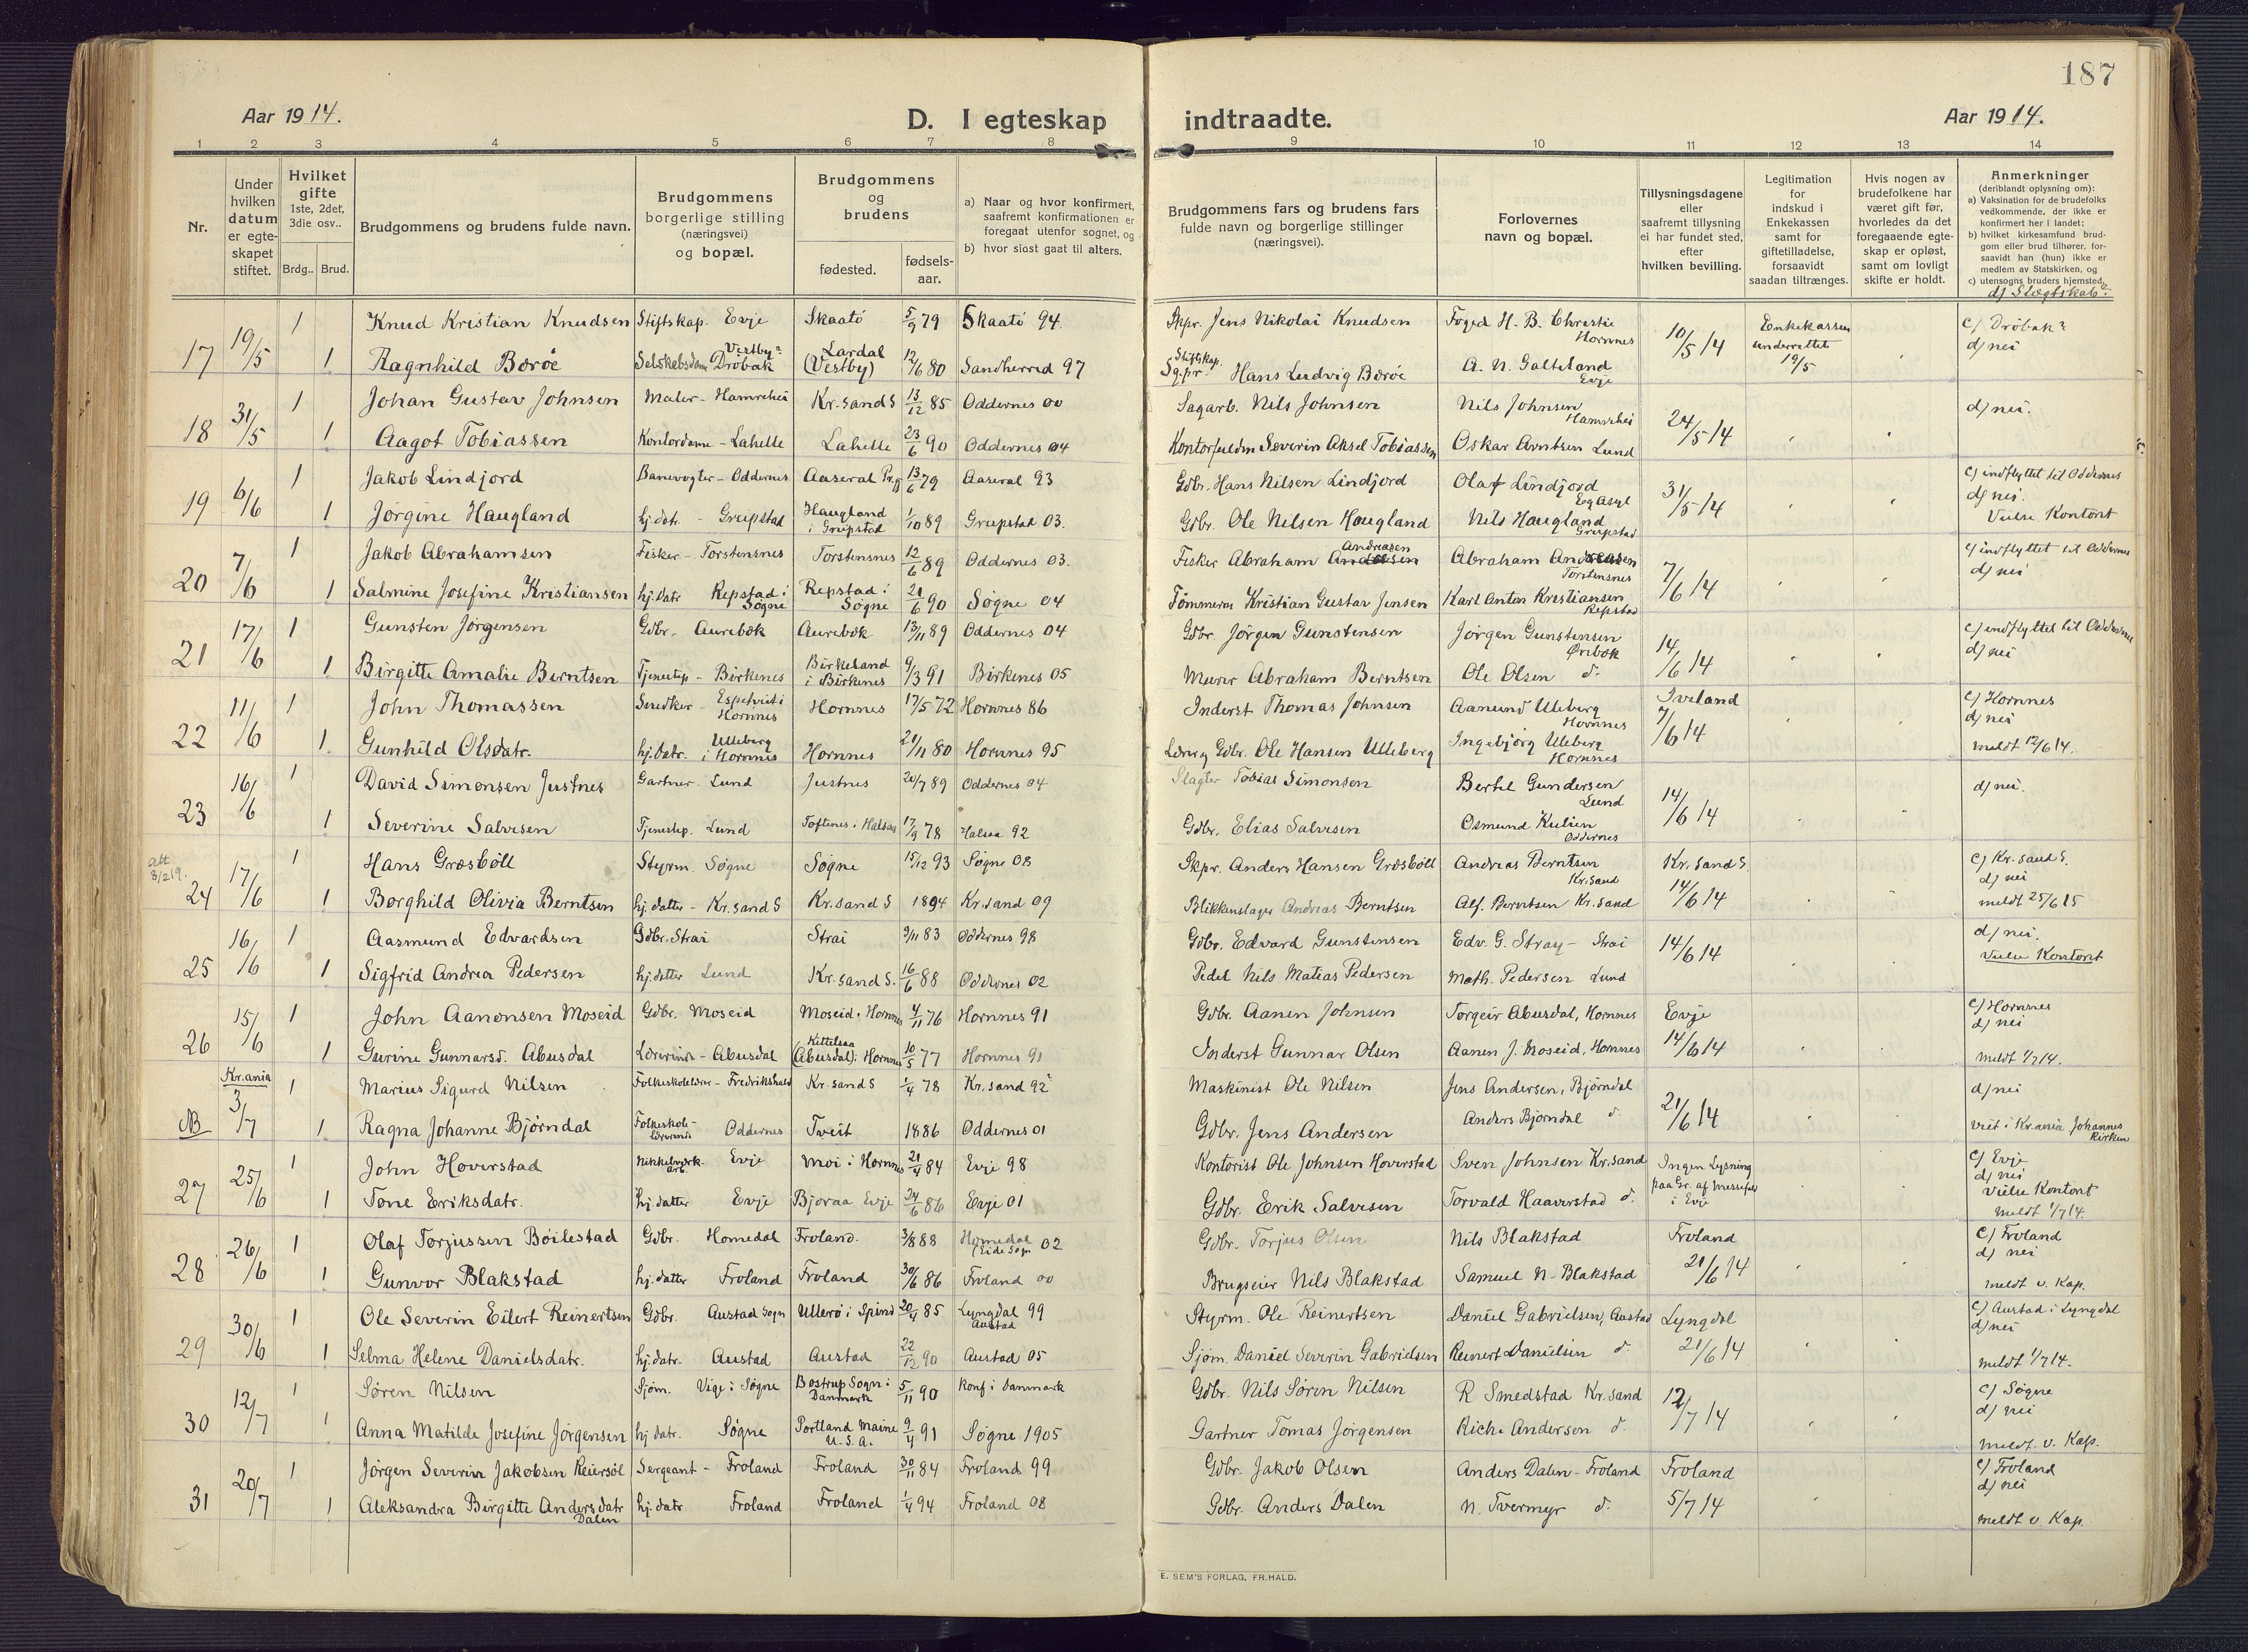 187
Aar 1914.
D. I egteskap
indtraadte.
Aar 1914.
1 2 3 4 5 6 7 8 9 10 11 12 13 14
Nr.
Under hvilken datum er egte-skapet stiftet.
Hvilket gifte
1ste, 2det, 3die osv..
Brdg.. Brud.
Brudgommens og brudens fulde navn.
Brudgommens borgerlige stilling (næringsvei) og bopæl.
Brudgommens og brudens
fødested. fødsels-aar.
a) Naar og hvor konfirmert, saafremt konfirmationen er foregaat utenfor sognet, og
b) hvor sidst gaat til alters.
Brudgommens fars og brudens fars fulde navn og borgerlige stillinger (næringsvei).
Forlovernes navn og bopæl.
Tillysningsdagene eller saafremt tillysning ei har fundet sted, efter hvilken bevilling.
Legitimation for indskud i Enkekassen samt for giftetilladelse, forsaavidt saadan tiltrænges.
Hvis nogen av brudefolkene har været gift før, hvorledes da det foregaaende egte-skap er opløst, samt om lovligt skifte er holdt.
Anmerkninger
(deriblandt oplysning om):
a) Vaksination for de brudefolks vedkommende, der ikke er konfirmert her i landet;
b) hvilket kirkesamfund brud-gom eller brud tilhører, for-saavidt han (hun) ikke er medlem av Statskirken, og
c) utensogns bruders hjemsted.
d) Slegtskab?
17 19/5 1 Knud Kristian Knudsen Stiftskap. Evje Skaatö 5/9 79 Skaatö 94. Skpr. Jens Nikolai Knudsen Foged H. B. Christie Hornnes 10/5 14 Enkekassen underrettet 19/5 c) Dröbak? d) nei
1 Ragnhild Böröe Selskabsdame Vestby? Dröbak Lardal (Vestby) 12/6 80 Sandherred 97 Stiftskap. Sg.pr. Hans Ludvig Böröe A. N. Galteland Evje
18 31/5 1 Johan Gustav Johnsen Maler - Hamrehei Kr.sand S 13/12 85 Oddernes 00 Sagarb. Nils Johnsen Nils Johnsen Hamrehei 24/5 14 d) nei.
1 Aagot Tobiassen Kontordame - Lahelle Lahelle 23/6 90 Oddernes 04 Kontorfuldm Severin Aksel Tobiassen Oskar Arntsen Lund
19 6/6 1 Jakob Lindjord Banevogter - Oddernes Aaseral 13/6 79 Aaseral 93 Gdbr. Hans Nilsen Lindjord Olaf Lindjord Eg Asyl 31/5 14 c) indflyttet til Oddernes d) nei.
1 Jörgine Haugland hj.datr. - Greipstad Haugland i Greipstad 1/10 89 Greipstad 03. Gdbr. Ole Nilsen Haugland Nils Haugland Greipstad Vielse Kontort
20 7/6 1 Jakob Abrahamsen Fisker - Torstensnes Torstensnes 12/6 89 Oddernes 03. Fisker Abraham Andreasen Abraham Andreasen Torstensnes 7/6 14 c) indflyttet til Oddernes d) nei
1 Salmine Josefine Kristiansen hj.datr Repstad i Søgne Repstad i Søgne 21/6 90 Søgne 04 Tömmerm Kristian Gustav Jensen Karl Anton Kristiansen Repstad
21 17/6 1 Gunsten Jörgensen Gdbr. Aurebök Aurebök 13/11 89 Oddernes 04 Gdbr. Jörgen Gunstensen Jörgen Gunstensen Örebök 14/6 14 c) indflyttet til Oddernes d) nei
1 Birgitte Amalie Berntsen Tjenestep - Birkenes Birkeland i Birkenes 9/3 91 Birkenes 05 Murer Abraham Berntsen Ole Olsen d.
22 11/6 1 John Thomassen Snedker - Espetveit i Hornnes Hornnes 17/5 72 Hornnes 86 Inderst Thomas Johnsen Aanund Uleberg Hornnes Iveland 7/6 14 c) Hornnes d) nei
1 Gunhild Olsdatr. hj.datr. Uleberg i Hornnes Hornnes 21/11 80 Hornnes 95 Gdbr. Ole Hansen Uleberg Ingebjörg Uleberg Hornnes meldt 12/6 14.
23 16/6 1 David Simonsen Justnes Gartner. Lund Justnes 20/7 89 Oddernes 04 Slagter Tobias Simonsen Bertel Gundersen Lund 14/6 14 d) nei.
1 Severine Salvesen Tjenestep. Lund Toftenes i Halsaa 17/9 78 Halsaa 92 Gdbr. Elias Salvesen Osmund Kulien Oddernes
att 8/2 19.
24 17/6 1 Hans Græsböll Styrm. Søgne Søgne 15/12 93 Søgne 08 Skpr. Anders Hansen Græsböll Andreas Berntsen Kr.sand Kr.sand S. 14/6 14 c) Kr.sand S. d) nei
1 Borghild Olivia Berntsen hj.datter - Kr.sand S Kr.sand S 1894 Kr.sand 09 Blikkenslager Andreas Berntsen Alf. Berntsen Kr.sand meldt 25/6 15
25 16/6 1 Aasmund Edvardsen Gdbr. Strai Strai 9/11 83 Oddernes 98 Gdbr. Edvard Gunstensen Edv. G. Stray - Strai 14/6 14 d) nei.
1 Sigfrid Andrea Pedersen hj.datter Lund Kr.sand S. 16/6 88 Oddernes 02 Pedel Nils Matias Pedersen Math. Pedersen Lund Vielse Kontort
26 15/6 1 John Aanonsen Moseid Gdbr. Moseid Moseid i Hornnes 4/11 76 Hornnes 91 Gdbr. Aanen Johnsen Torgeir Abusdal, Hornnes Evje 14/6 14 c) Hornnes d) nei
1 Gurine Gunnarsd. Abusdal Lærerinde - Abusdal Kittelsaa (Abusdal) i Hornnes 10/5 77 Hornnes 91 Inderst Gunnar Olsen Aanen J. Moseid, Hornnes meldt 1/7 14.
NB Kr.ania 3/7 1 Marius Sigurd Nilsen Folkeskolelærer - Fredrikshald Kr.sand S 1/4 78 Kr.sand 92? Maskinist Ole Nilsen Jens Andersen, Björndal 21/6 14 d) nei
1 Ragna Johanne Björndal Folkeskole-lærerinde Oddernes Tveit 1886 Oddernes 01 Gdbr. Jens Andersen Anders Björndal d. viet i Kr.ania Johannes Kirken
27 25/6 1 John Hoverstad Nikkelverk. arb. Evje Moi i Hornnes 21/4 84 Evje 98 Kontorist Ole Johnsen Hoverstad Sven Johnsen Kr.sand Ingen Lysning paa Gr. af Messefald i Evje c) Evje d) nei
1 Tone Eriksdatr. hj.datter Evje Bjoraa Evje 24/6 86 Evje 01 Gdbr. Erik Salvesen Torvald Haaverstad d. Vielse Kontort meldt 1/7 14.
28 26/6 1 Olaf Torjussen Böilestad Gdbr. Homedal Froland. 3/8 88 Homedal (Eide Sogn 02 Gdbr. Torjus Olsen Nils Blakstad Froland 21/6 14 c) Froland d) nei
1 Gunvor Blakstad hj.datter Froland Froland 30/6 86 Froland 00 Brugseier Nils Blakstad Samuel N. Blakstad meldt v. Kap.
29 30/6 1 Ole Severin Eilert Reinertsen Gdbr. Austad Sogn Ullerö i Spind 20/4 85 Lyngdal 99 Austad Styrm. Ole Reinertsen Daniel Gabrielsen, Austad Lyngdal 21/6 14 c) Austad i Lyngdal d) nei
1 Selma Helene Danielsdatr. hj.datr. Austad Austad 22/12 90 Austad 05 Sjöm. Daniel Severin Gabrielsen Reinert Danielsen d. meldt 1/7 14.
30 12/7 1 Sören Nilsen Sjöm. Vige i Søgne Bostrup Sogn i Danmark 5/11 90 Konf i Danmark Gdbr. Nils Sören Nilsen R Smedstad Kr.sand 12/7 14 c) Søgne d) nei
1 Anna Matilde Josefine Jörgensen hj.datr. Søgne Portland Maine U.S.A. 9/4 91 Søgne 1905 Gartner Tomas Jörgensen Rich. Andersen d. meldt. v. Kap.
31 20/7 1 Jörgen Severin Jakobsen Reiersöl Sergeant - Froland Froland 30/11 84 Froland 99 Gdbr. Jakob Olsen Anders Dalen - Froland Froland 5/7 14 c) Froland d) nei
1 Aleksandra Birgitte Andersdatr Dalen hj.datr Froland Froland 1/4 94 Froland 08 Gdbr. Anders Dalen N. Tvermyr d. meldt v. Kap.
E. SEM'S FORLAG, FR.HALD.